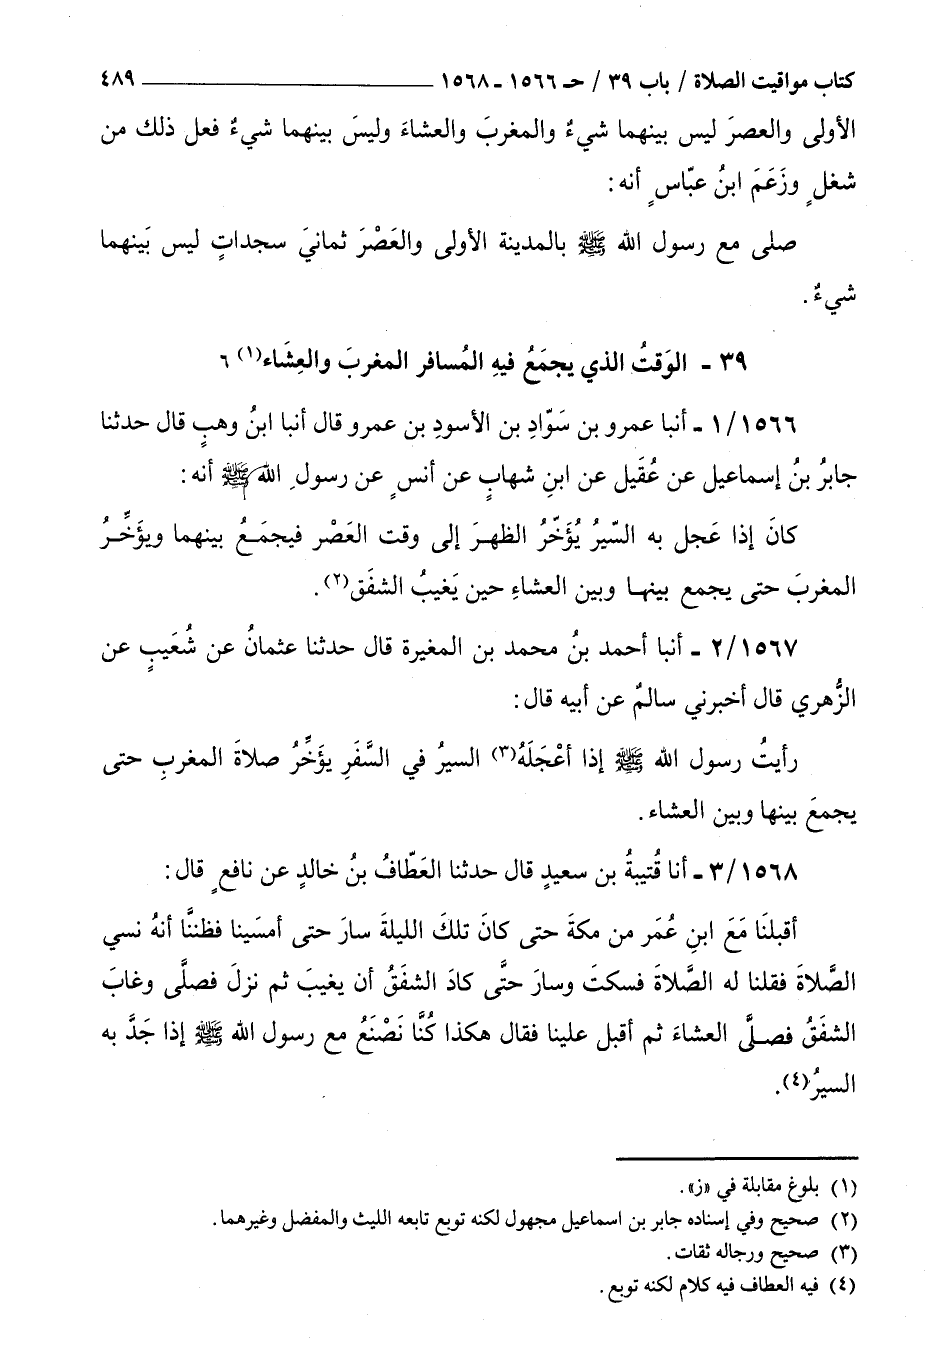 كتاب مواقيت الصلاة / باب ٣٩ / حـ ١٥٦٦ ـ ١٥٦٨ ٤٨٩
الأولى والعصرَ ليس بينهما شيءٌ والمغربَ والعشاءَ وليسَ بينهما شيءٌ فعل ذلك من
شغلٍ وزَعَمَ ابنُ عبّاسٍ أنه :
صلى مع رسول الله ﷺ بالمدينة الأولى والعَصْرَ ثمانيَ سجداتٍ ليس بَينهما
شيءٌ .
٣٩ ـ الوَقتُ الذي يجمَعُ فيهِ المُسافر المغربَ والعِشَاء(١) ٦
١/١٥٦٦ ـ أنبا عمرو بن سَوّادِ بن الأسودِ بن عمرو قال أنبا ابنُ وهبٍ قال حدثنا
جابرُ بنُ إسماعيل عن عُقَيل عن ابنِ شهابٍ عن أنسٍ عن رسولِ الله ﷺ أنه :
كانَ إذا عَجل به السّيرُ يُؤَخّرُ الظهرَ إلى وقت العَصْر فيجمَعُ بينهما ويؤخِّرُ
المغربَ حتى يجمع بينها وبين العشاءِ حين يَغيبُ الشفَق(٢).
٢/١٥٦٧ ـ أنبا أحمد بنُ محمد بن المغيرة قال حدثنا عثمانُ عن شُعَيبٍ عن
الزُّهري قال أخبرني سالمٌ عن أبيه قال :
رأيتُ رسول الله ﷺ إذا أعْجَلَهُ(٣) السيرُ في السَّفَرِ يؤَخِّرُ صلاةَ المغربِ حتى
يجمعَ بينها وبين العشاء .
٣/١٥٦٨ ـ أنا قُتيبةُ بن سعيدٍ قال حدثنا العَطّافُ بنُ خالدٍ عن نافعٍ قال :
أقبلنَا مَعَ ابنِ عُمَر من مكةَ حتى كانَ تلكَ الليلةَ سارَ حتى أمسَينا فظننَّا أنهُ نسي
الصَّلاةَ فقلنا له الصَّلاةَ فسكتَ وسارَ حتَّى كادَ الشفَقُ أن يغيبَ ثم نزلَ فصلَّى وغابَ
الشفَقُ فصلَّى العشاءَ ثم أقبل علينا فقال هكذا كُنَّا نَصْنَعُ مع رسول الله ﷺ إذا جَدَّ به
السيرُ(٤).
(١) بلوغ مقابلة في «ز» .
(٢) صحيح وفي إسناده جابر بن اسماعيل مجهول لكنه توبع تابعه الليث والمفضل وغيرهما .
(٣) صحيح ورجاله ثقات .
(٤) فيه العطاف فيه كلام لكنه توبع .